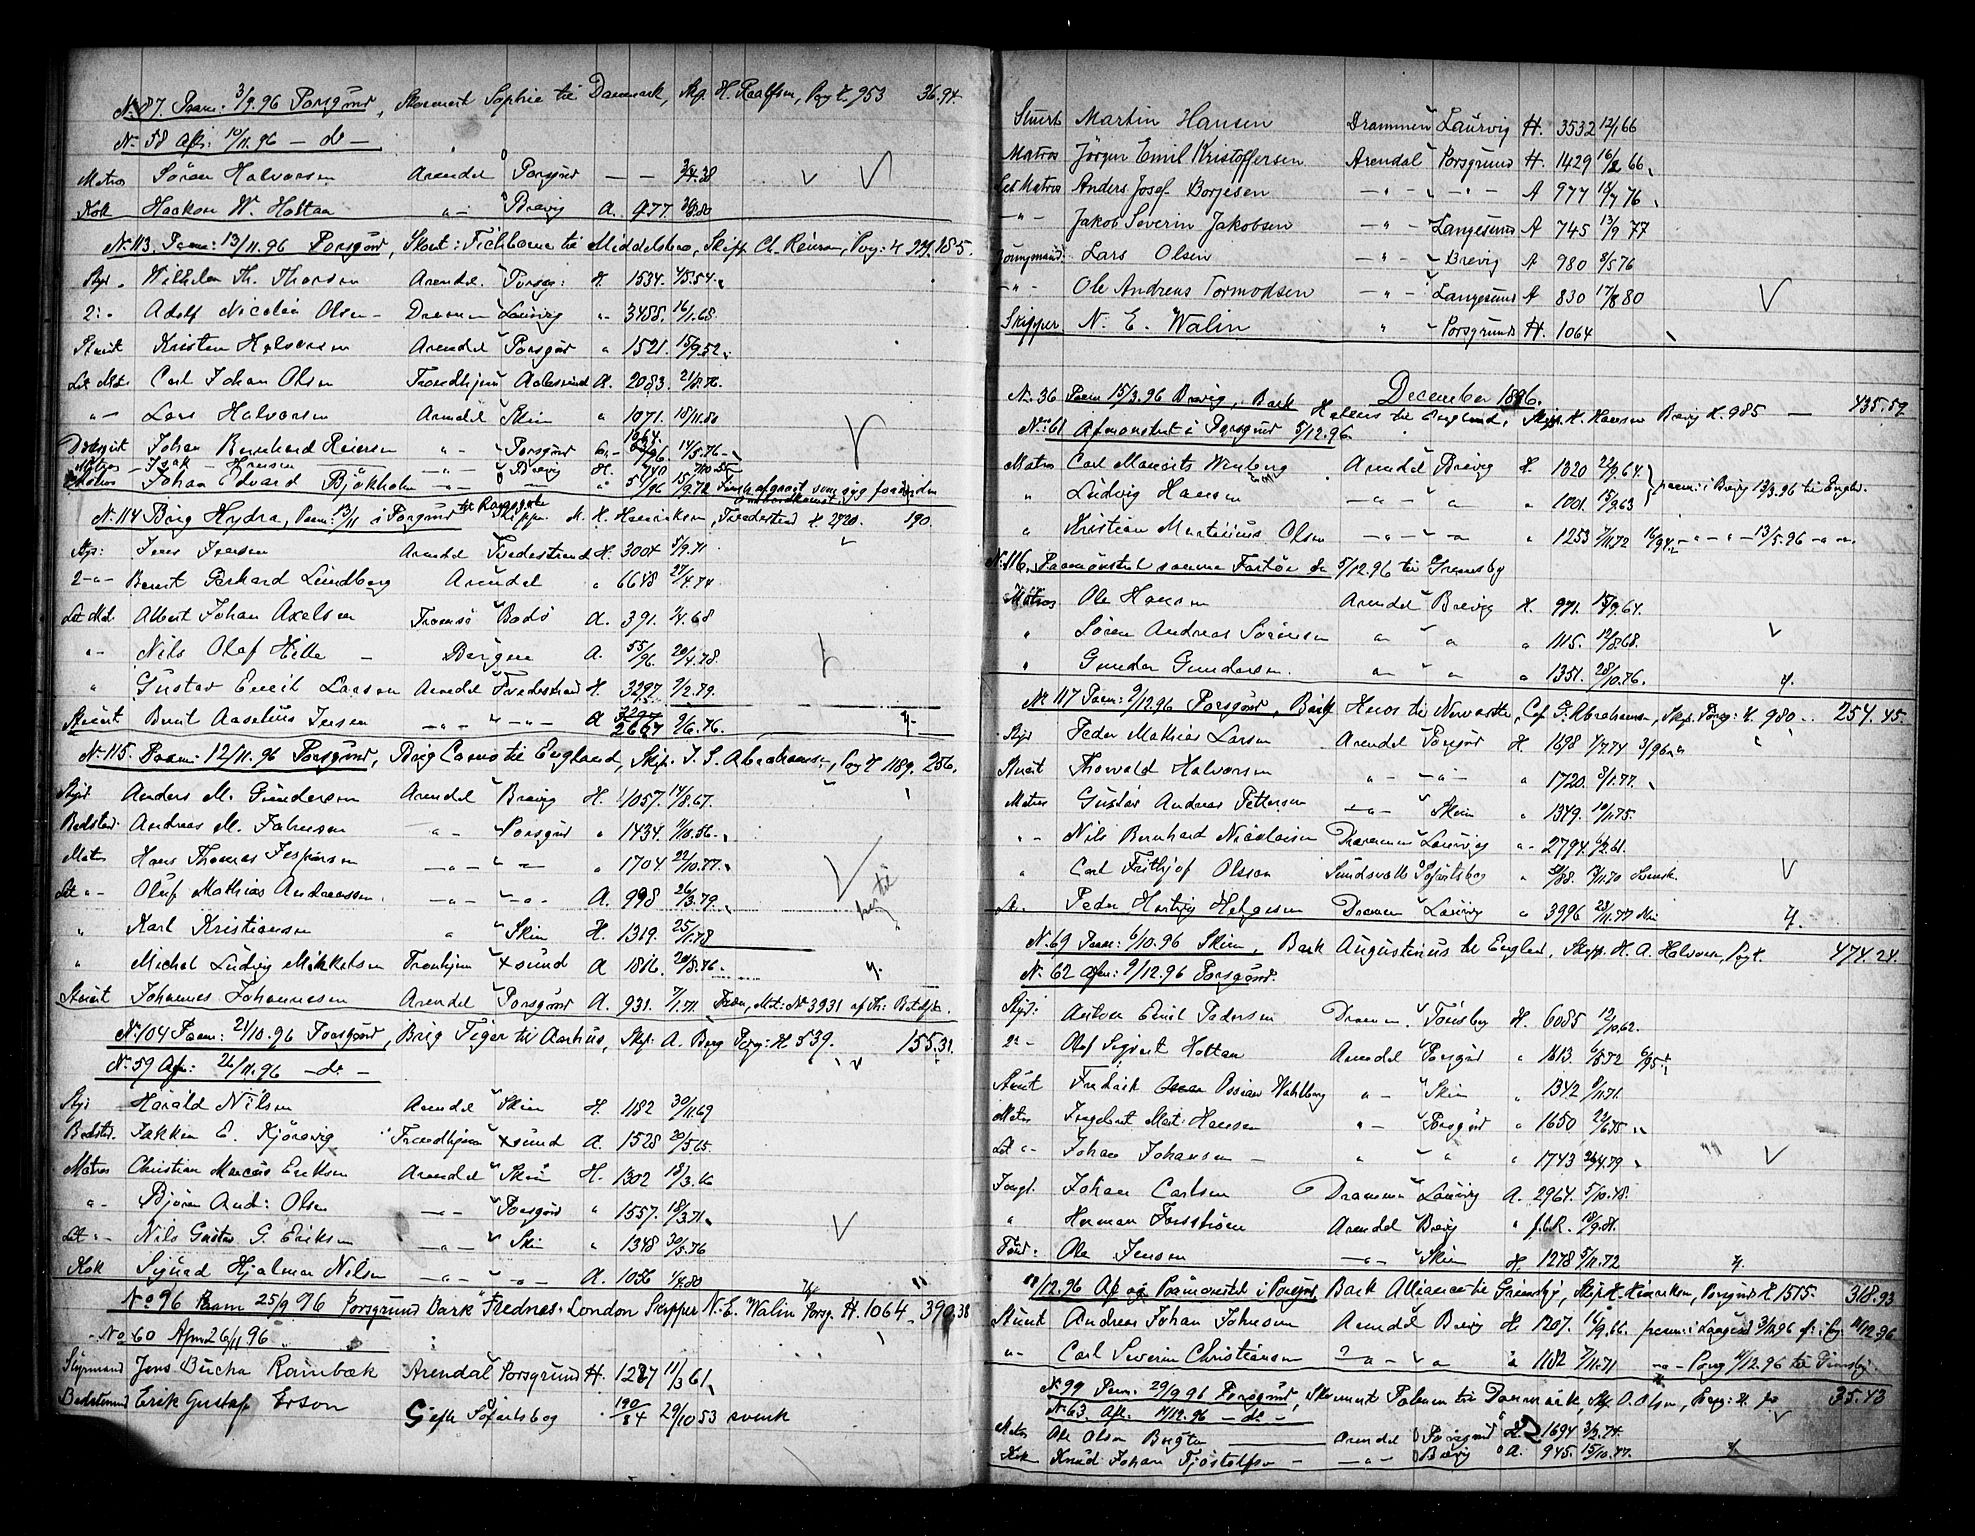 No 87. Paam: 3/9.96 Porsgrund, Skonnert Sophie til Danmark, Skp. H. Raalfsen, Porg. H. 953 36.94.
No 58 Afm: 10/11.96 — do —
Matros Søren Halvorsen Arendal Porsgrund — —
Kok Haakon W. Holtan " - Brevig A. 977.
No 113 Paam: 13/11.96 Porsgrund, Skont: Tichborne til Middelsbro, Skipp. Ch. Reiersen, Porg: H
Styr. Wilhelm Th. Thorsen Arendal. Porsgr: H 1534. 4/5.54.
2: - Adolf Nicolai Olsen - Drammen Laurvig " 3488. 16/1.68.
Stuert Kristen Halvorsen Arendal Porsgrund " 1521. 15/9.52.
Let Mats Carl Johan Olsen Trondhjem Aalesund A. 2083. 21/8.76.
" - Lars Halvorsen Arendal Skien " 1071. 18/11.80
Johan Bernhard Reiersen " - Porsgrund 14/5.76
Matros - Isak - Hansen - " - Brevig H. 940
Matros Johan Edvard Bjökholm - " - " 5/96 15/9.72
No 114 Brig Hydra, Paam: 13/11 i Porsgrund til Ramsgate Skipper M. H. Henriksen, Tvedestrand H 2720. 190.
Styr: Jens Jensen Arendal Tvedestrand H. 3004 5/9.71
2 - " - Bernt Gerhard Lundberg Arendal " 6648 27/4.74
Let Mat. Albert Johan Axelsen Tromsø Bodø A. 391. 4/4.68
" - Nils Olaf Hille - Bergen A. 55/96 20/4.78.
" Gustav Emil Larsen Arendal Tvedestrand H. 3297. 7/2.79.
Stuert Bernt Aaselius Jensen - " - " - " - A 2667 9/6.76.
No 115. Paam: 12/11.96 Porsgrund, Brig Camo til England, Skip. J. S. Abrahamsen, Porg H 1189. 256.
Styr Anders M. Gundersen Arendal Brevig H. 1057. 14/8.67.
Bedstm: Andreas M. Johnsen " - Porsgrund " 1434. 1/10.56.
Matros Hans Thomas Jespersen - " - " - " 1704. 22/10.77.
Let " - Oluf Mathias Andreassen - " - " - " - A. 998 26/3.79.
" Karl Kristiansen " Skien H. 1319. 25/1.78
" Michel Ludvig Mikkelsen Tronhjem Xsund A 1816. 20/8.76.
Stuert Johannes Johannesen Arendal Porsgrund A. 931. 7/1.71.
No 104 Paam: 21/10.96 Porsgrund, Brig Tiger til Aarhus, Skp. A. Berg Porg: H 539. 155.31.
No 59 Afm: 26/11.96 - do -
Styr Harald Nilsen Arendal Skien H. 1182 30/11.69
Bedstm. Jakken E. Kjörsvig Trondhjem Xsund A. 1528 20/5.65.
Matros Christian Marcus Eriksen Arendal Skien H. 1302 18/3.66
" - Bjørn And: Olsen - " - Porsgrund " 1557. 18/3.71.
Let " - Nils Gustav G. Eriksen - " - Skien " 1348 30/5.76
Kok Sigurd Hjalmar Nilsen - " - " - " - A. 1056
No 96 Paam 25/9 96 Porsgrund Bark "Frednes" London Skipper N. E. Walin Porsg. H. 1064 - 390.38
No 60 Afm 26/11 96
Styrmand Jens Bucha Rambæk Arendal Porsgrund H. 1287 11/3 61
Bedstemand Erik Gustaf Erson Gefle Söfartsbog 190/84 29/10 53 svensk
Stuert Martin Hansen Drammen Laurvig H. 3532 12/1 66
Matros Jörgen Emil Kristoffersen Arendal Porsgrund H. 1429 16/2 66
Let Matros Anders Josef Borjesen - " - - " - A 977 18/7 76
- " - Jakob Severin Jakobsen - " - Langesund A 745 13/9 77
Joungmand Lars Olsen - " - Brevig A 980 8/5 76
- " - Ole Andreas Tormodsen - " - Langesund A 830 17/8 80
Skipper N. E. Walin " Porsgrund H. 1064
December 1896.
No 36 Paam 15/3.96 Brevig, Bark Helens til England, Skip. H. Hansen Brevig H. 985 — 435.57
No 61 Afmonstret i Porsgrund 5/12.96.
Matros Carl Mauritz Wenberg Arendal Brevig H. 1320 22/9.64. paam: i Brevig 13/3.96 til Engld.
" Ludvig Hansen - " - " " 1001. 15/9.63
" Kristian Martinius Olsen - " - " " 1253 7/11.72 - " - " - 13/5.96 - " - "
No 116. Paamönstret samme Fartöi do 5/12.96 til Grimsby
Matros Ole Hansen Arendal Brevig H. 971. 15/9.64.
" Søren Andreas Sørensen " - " " 1115. 12/8.68.
" Gunder Gundersen. " - " " 1351. 28/10.76.
No 117 Paam: 9/12.96 Porsgrund, Bark Huos til Newcastle, Cof. G. Abrahamsen, Skp. Porsg: H. 980. 254.45.
Styr Peder Mathias Larsen Arendal Porsgrund H. 1698
Stuert Thorvald Halvorsen " - - " - " 1720. 8/1.77.
Matros Gustav Andreas Pettersen - " - Skien " 1349. 10/1.75.
" - Nils Bernhard Nicolaisen Drammen Laurvig " - 2794. 6/2.61.
" Carl Frithjof Olsson Sundsvall Söfartsbog Svensk.
A. Peder Hartvig Helgesen Drammen Laurvig " 3996 23/11.77
No 69 Paam: 6/10.96 Skien, Bark Augustinus til England, Skipp. H. A. Halvorsen, Porg H. 474.24.
No 62 Afm: 9/12.96 Porsgrund.
Styr: Anton Emil Pedersen Drammen. Tönsberg H. 6085 12/10.62.
2 " - Olaf Sigvart Holtan Arendal Porsgrund " 1613. 6/8.72
Stuert Fredrik Ossian Wahlberg " - Skien " 1342 9/11.71.
Matros Ingebret Mat: Hansen " - Porsgrund " 1650 22/6.75
Let " - Johan Johansen - " " " 1743 26/4.79
Jongm. Johan Carlsen Drammen Laurvig A. 2964. 5/10.78.
" Herman Forsström Arendal Brevig " f.b.R. 18/9.81.
Tönd: Ole Jensen - " - Skien H. 1278 5/11.72
11/12.96 Af og Paamönstret i Porsgrund, Bark Alliance til Grimsby, Skip. H. Hinriksen, Porsgrund H 1515. 318.93
Stuert Andreas Johan Johnsen Arendal Brevig H. 1207. 16/9.66.
" - Carl Severin Christiansen - " - " " 1182 7/11.71 - " - Porsg 11/12.96 til Grimsby.
No 99 Paam: 29/9 96 Porsgrund, Skonnert Palmen til Danmark, Skp. O. Olsen, Porsg: H. 35.43
No 63. Afm. 11/12.96 - do -
Matros Ole Olsen Bugten Arendal Porsgrund H 1694 3/2.74.
Kok Knud Johan Tjöstolfsen - - " - Brevig A. 945. 15/10.77.